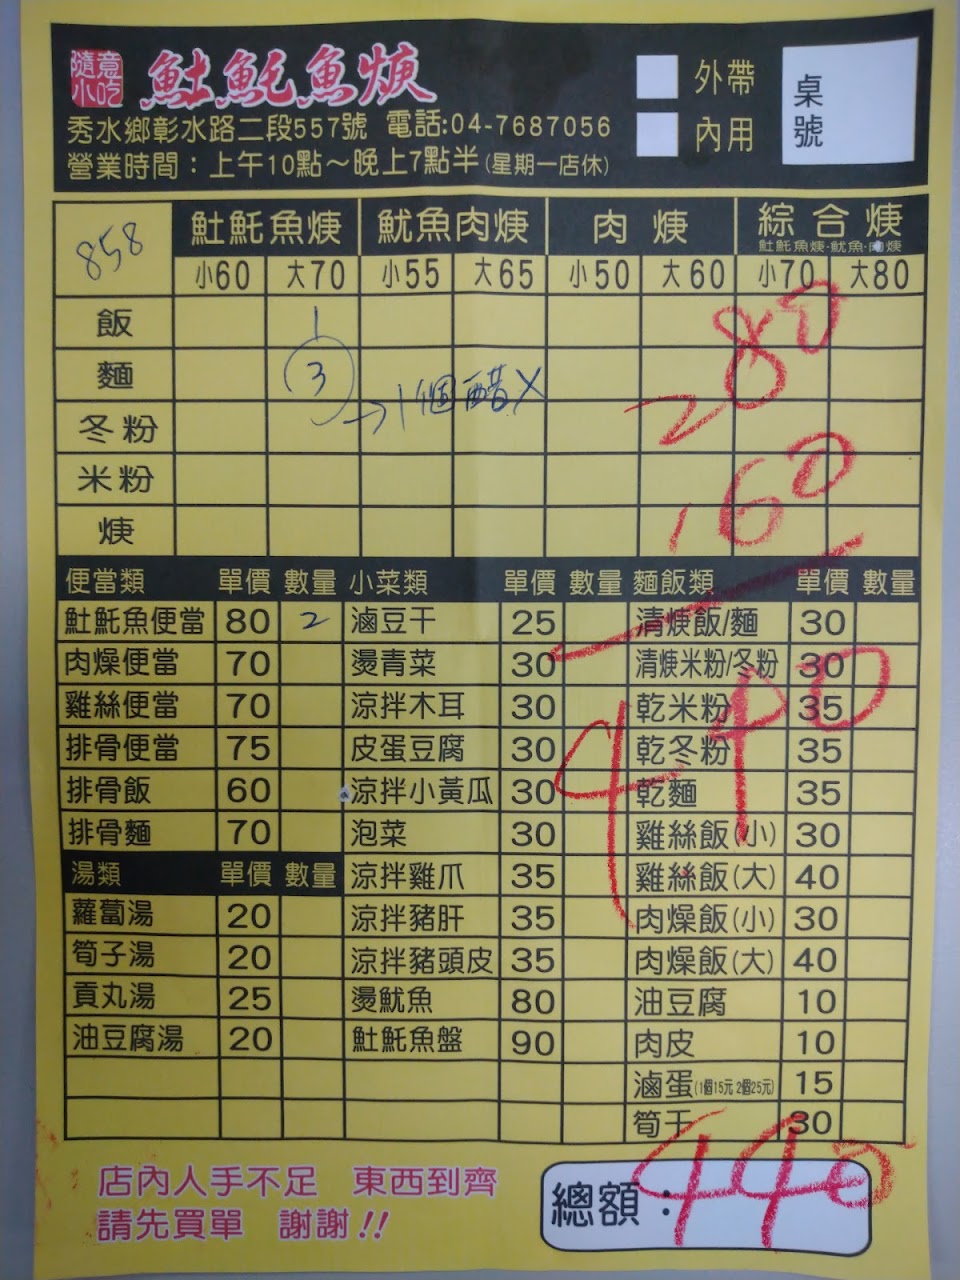 隨意小吃 𩵚魠魚焿 外帶 桌號
秀水鄉彰水路二段557號 電話:04-7687056 內用
營業時間：上午10點～晚上7點半(星期一店休)
858 𩵚魠魚焿 魷魚肉焿 肉焿 綜合焿
𩵚魠魚焿·魷魚·肉焿
小60 大70 小55 大65 小50 大60 小70 大80
飯 1
麵 3 →1個醋X 280
冬粉
米粉 160
焿
便當類 單價 數量 小菜類 單價 數量 麵飯類 單價 數量
𩵚魠魚便當 80 2 滷豆干 25 清焿飯/麵 30
肉燥便當 70 燙青菜 30 清焿米粉/冬粉 30
雞絲便當 70 涼拌木耳 30 乾米粉 35
440
排骨便當 75 皮蛋豆腐 30 乾冬粉 35
排骨飯 60 涼拌小黃瓜 30 乾麵 35
排骨麵 70 泡菜 30 雞絲飯(小) 30
湯類 單價 數量 涼拌雞爪 35 雞絲飯(大) 40
蘿蔔湯 20 涼拌豬肝 35 肉燥飯(小) 30
筍子湯 20 涼拌豬頭皮 35 肉燥飯(大) 40
貢丸湯 25 燙魷魚 80 油豆腐 10
油豆腐湯 20 𩵚魠魚盤 90 肉皮 10
滷蛋(1個15元 2個25元) 15
筍干 30
店內人手不足 東西到齊
請先買單 謝謝!!
總額： 440